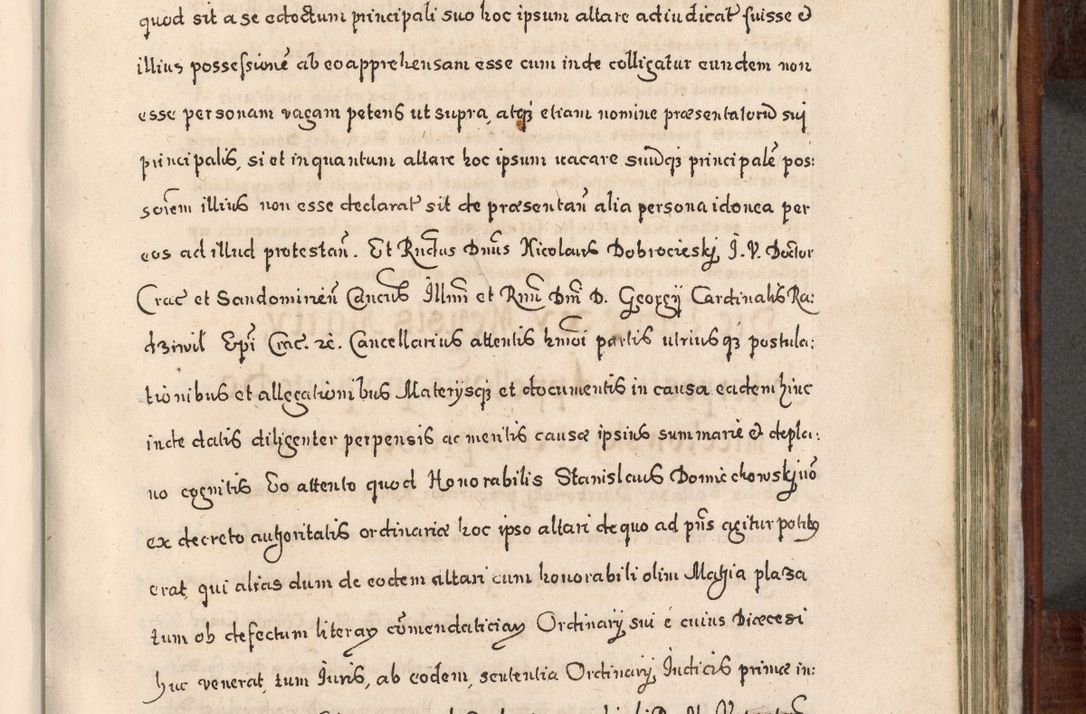 quod sit a se edoctum principali suo hoc ipsum altare adiudicat̃ fuisse &
illius possessionẽ ab eo apprehensam esse cum inde colligatur eundem non
esse personam vagam petens ut supra, atq3 etiam nomine præsentatorũ sui
principalis, si et in quantum altare hoc ipsum uacare suũq3 principalẽ pos:
sorem illius non esse declarat̃ sit de præsentañ alia persona idonea per
eos ad illud protestañ. Et Rñdus Dnũs Nicolaus Dobrocieskj J. V. Doctor
Crac̃ et Sandomirieñ Cancus Illm̃i et Rm̃i Dm̃i D. Georgij Cardinalis Ra:
dziwil Ep̃i Crac̃. rc̃. Cancellarius attentis hm̃oi partis utriusq3 postula:
tionibus et allegationibus Materijsq3 et documentis in causa eadem hinc
inde datis diligenter perpensis ac mentis causæ ipsius summarie & depla:
no cognitis Eo attento quod Honorabilis Stanislaus Domiechowskj uõ
ex decreto authoritatis ordinariæ hoc ipso altari de quo ad pñs agitur potitq
erat, qui alias dum de eodem altari cum honorabili olim Mathia plaza
tum ob defectum literaȝ cõmendaticiaȝ Ordinarij sui è cuius Diœcesi
huc venerat, tum Iuris, ab eodem, sententia Ordinarij Iudicis primæ in: